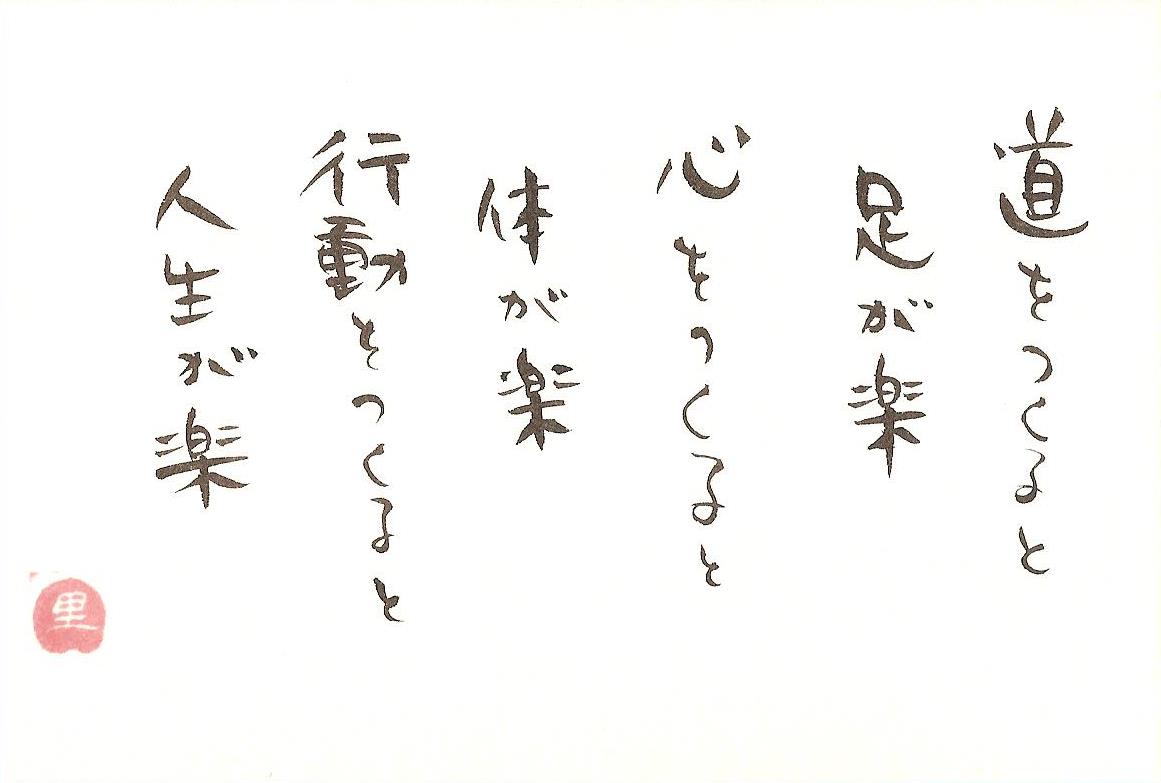 道をつくると
足が楽
心をつくると
体が楽
行動をつくると
人生が楽
里